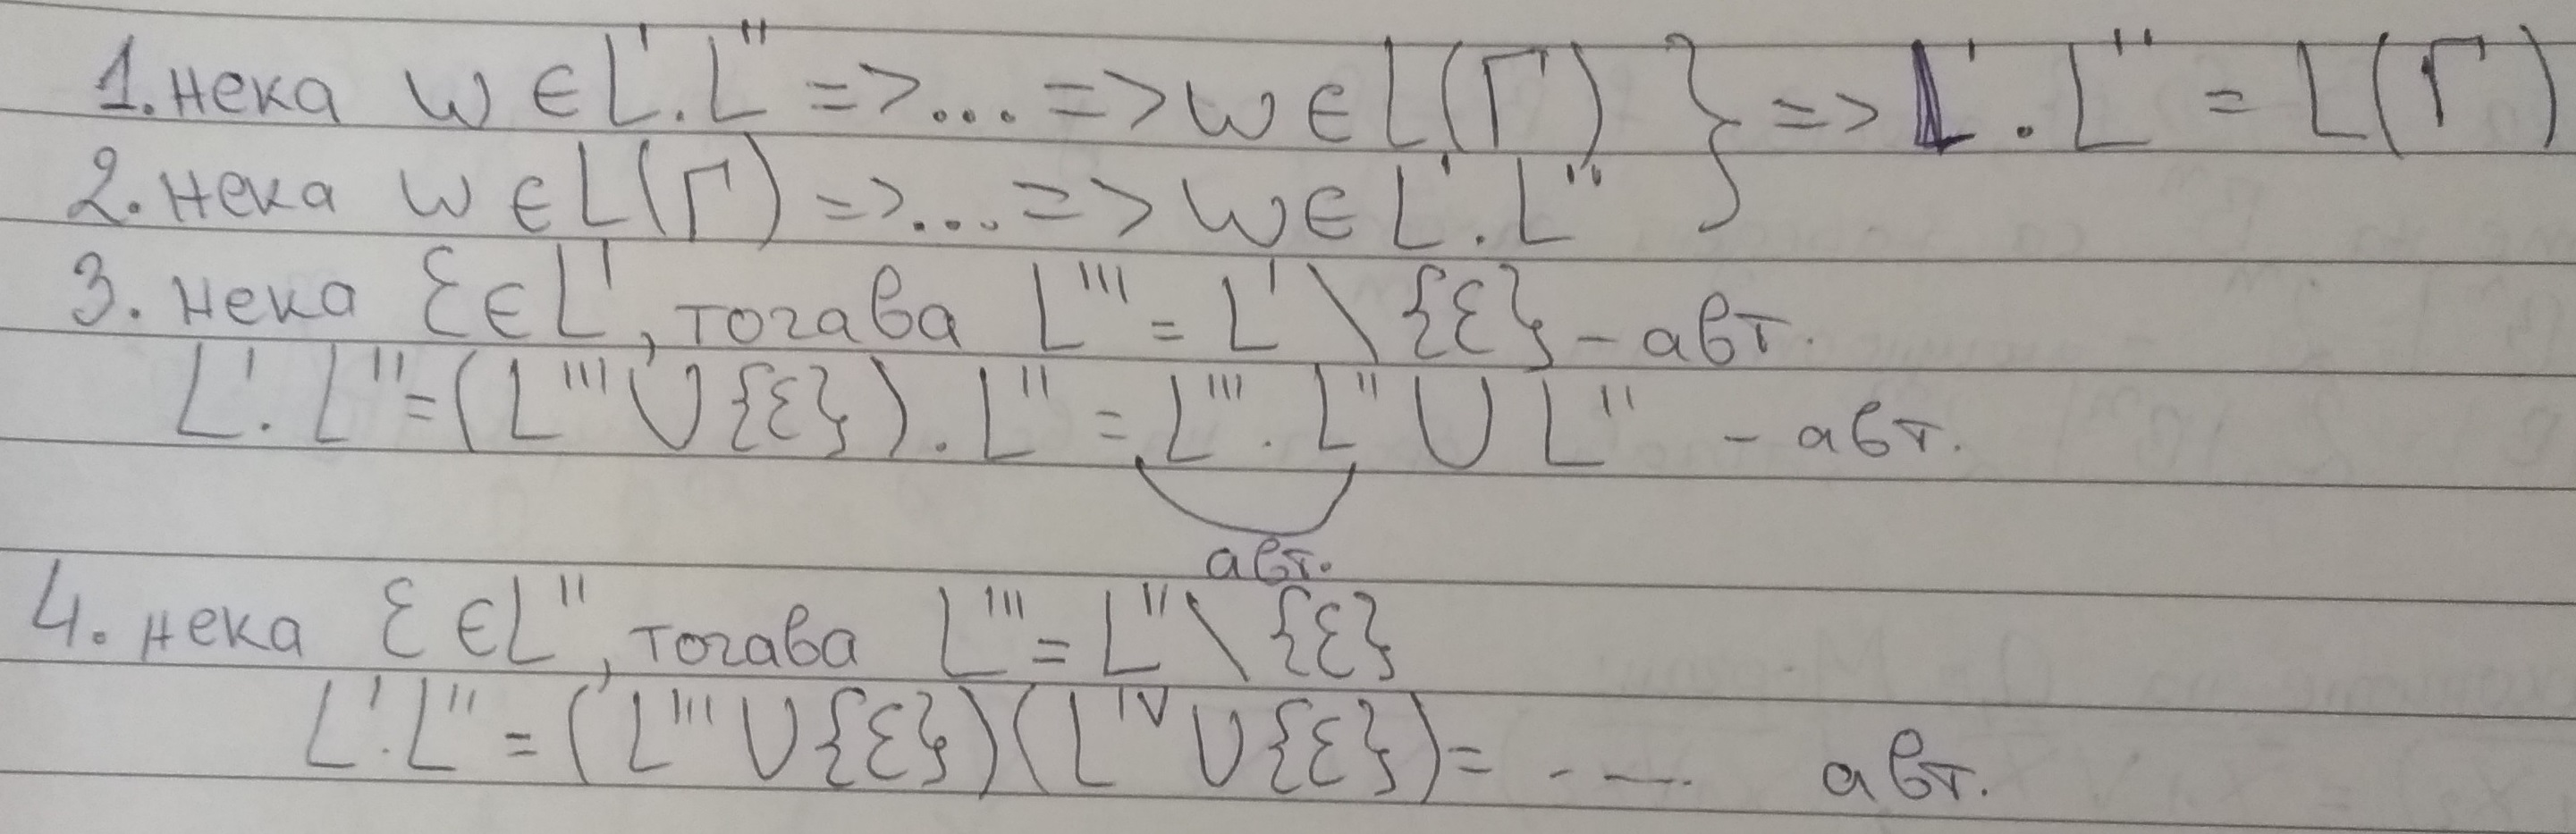 1. нека w ∈ L'.L'' => ... => w ∈ L(Г) } => L'.L'' = L(Г)
2. нека w ∈ L(Г) => ... => w ∈ L'.L''
3. нека ε ∈ L', тогава L'''' = L' \ {ε} - авт.
L'.L'' = (L'''' ∪ {ε}).L'' = L''''.L'' ∪ L'' - авт.
авт.
4. нека ε ∈ L'', тогава L''' = L'' \ {ε}
L'.L'' = (L'''' ∪ {ε})(L^IV ∪ {ε}) = ... авт.